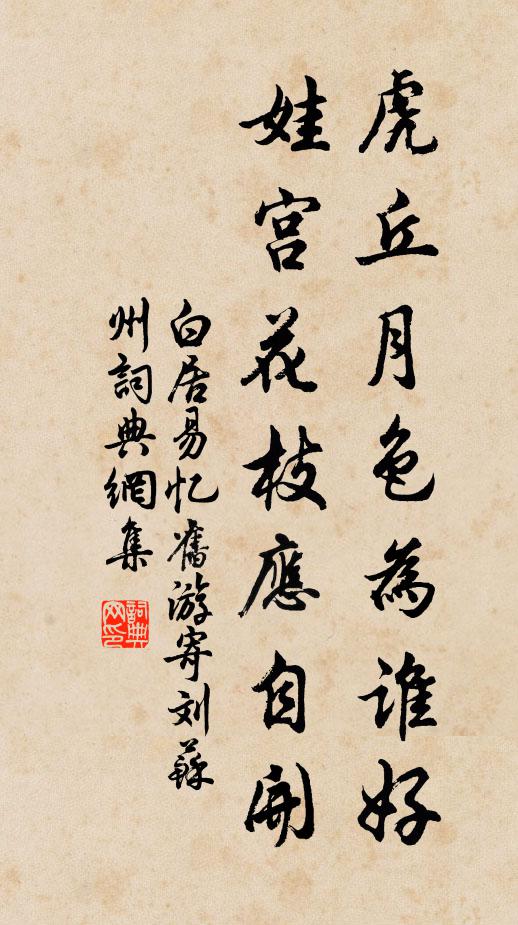 虎丘月色為誰好
娃宫花枝應自開
白居易忆舊游寄刘蘇
州詞典網集
詞典網印